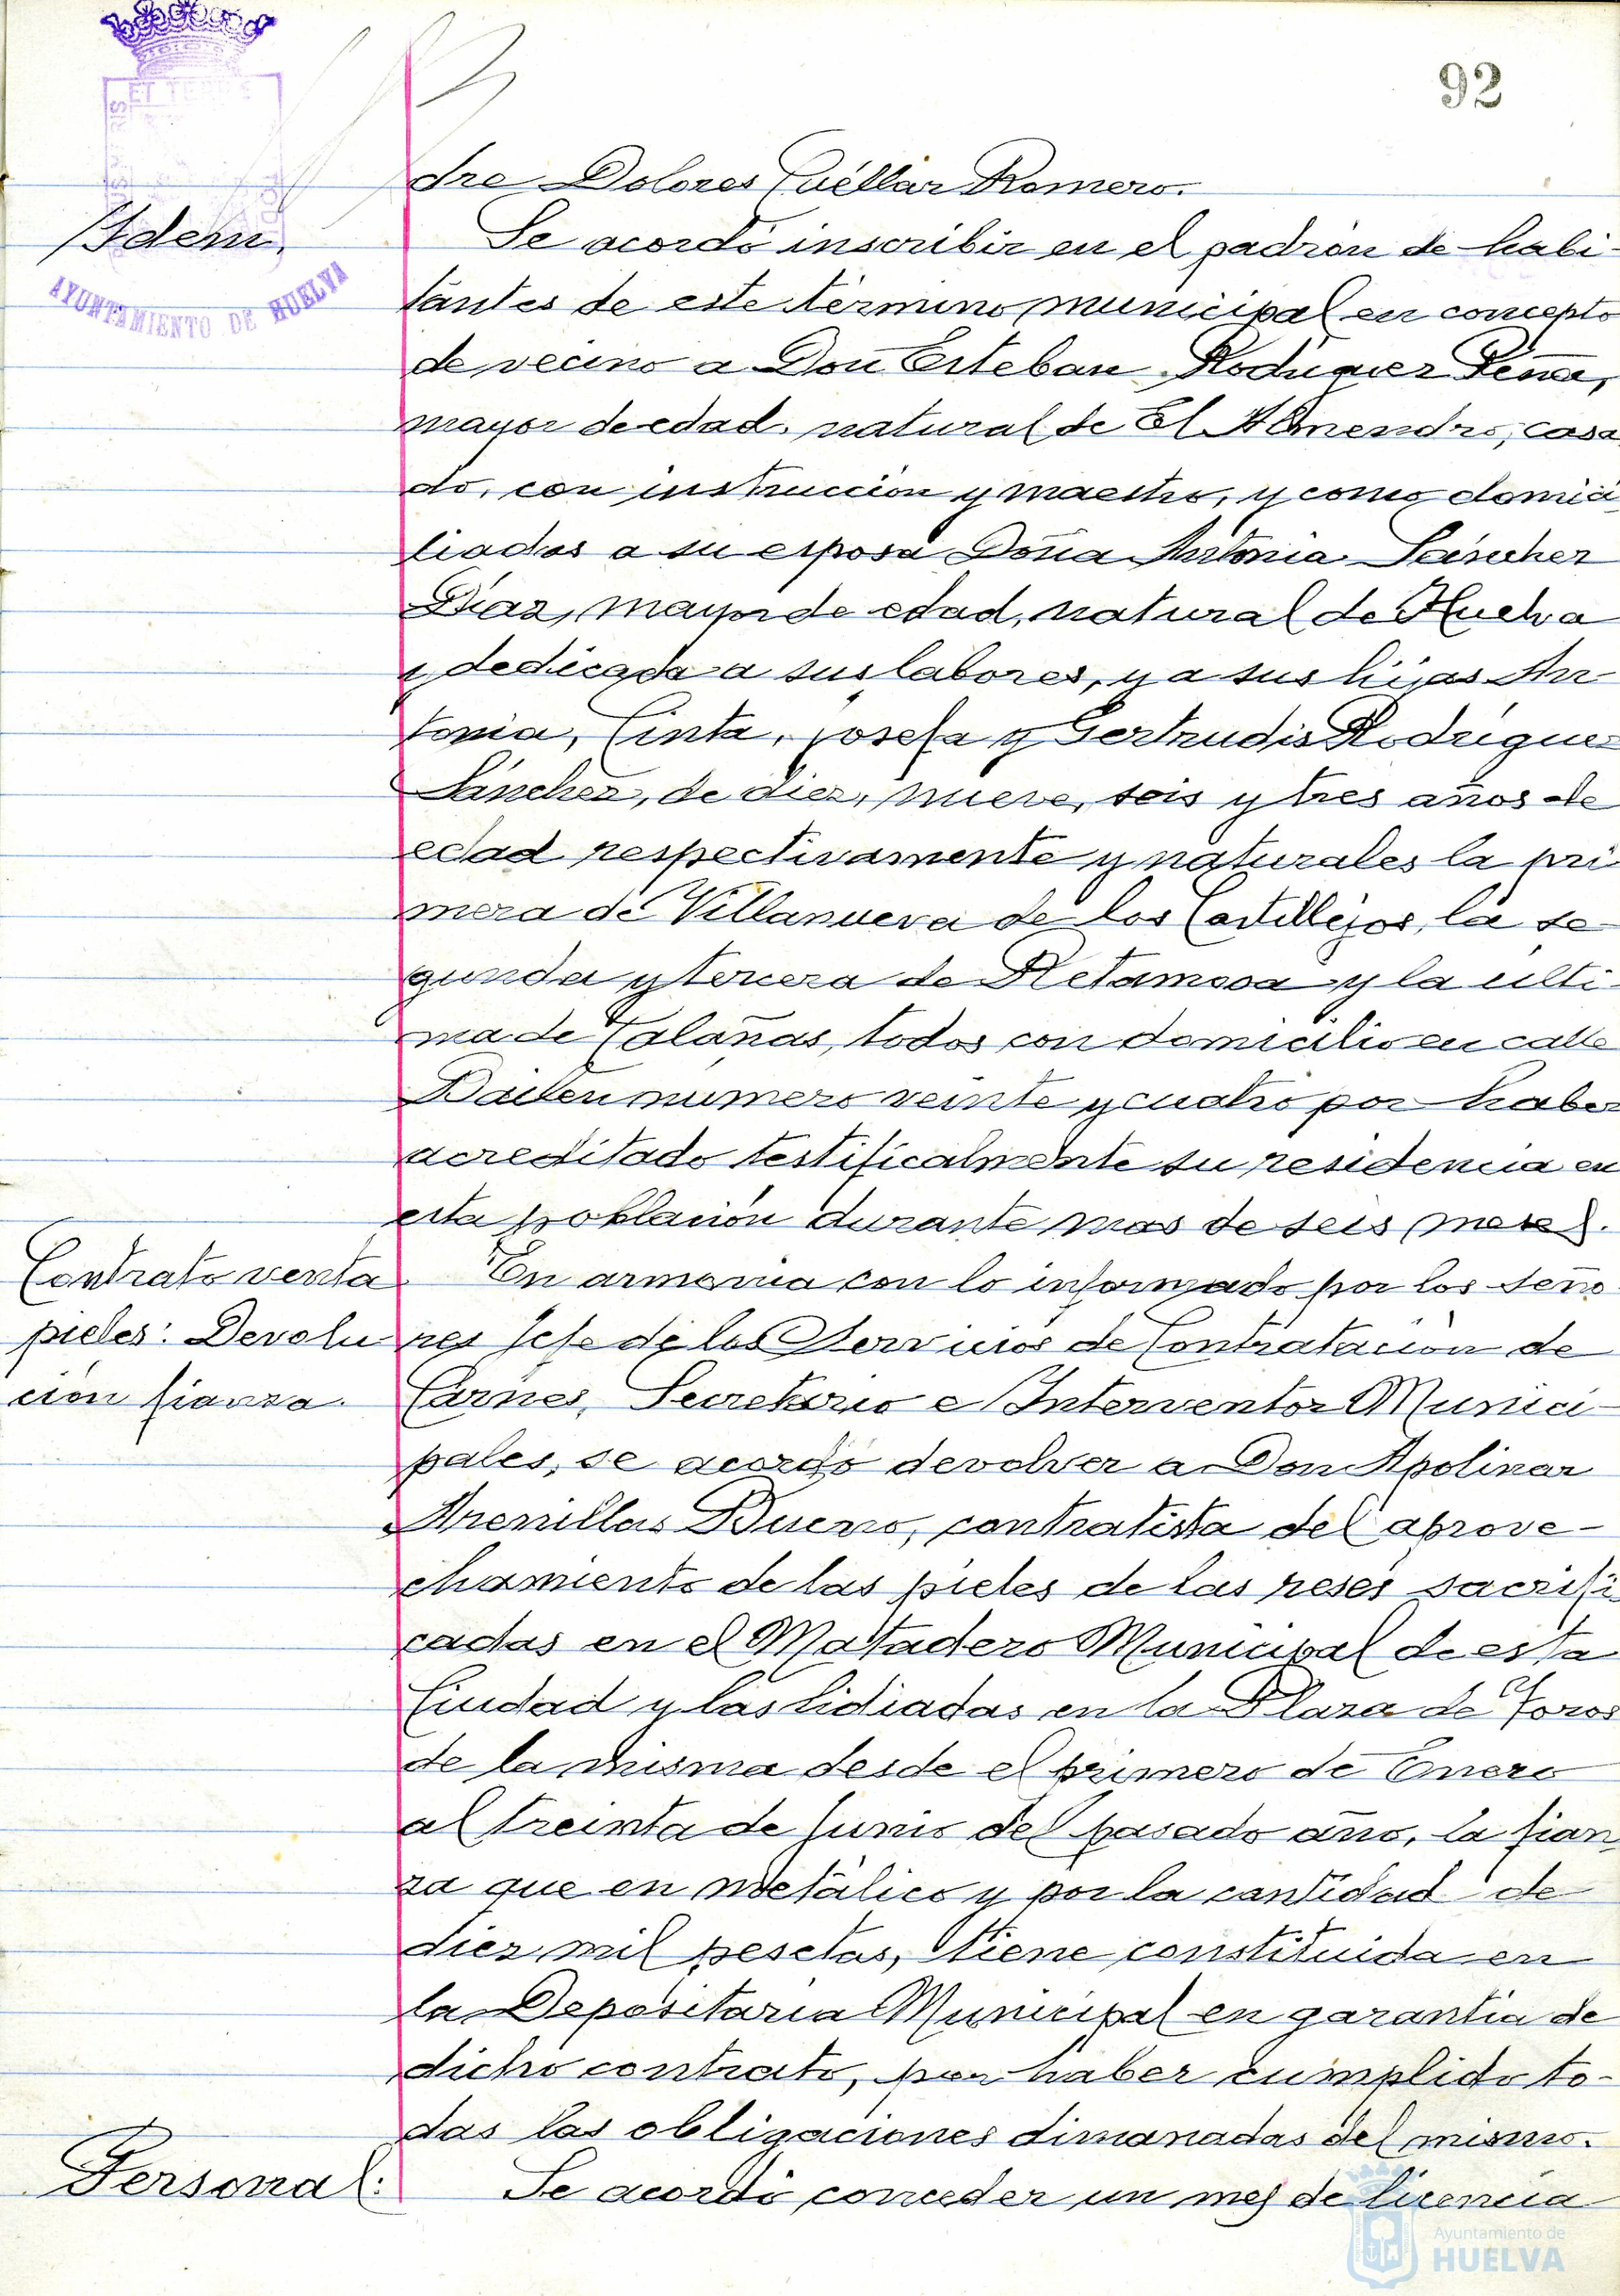 92
dre Dolores Cuéllar Romero.
Idem.
Se acordó inscribir en el padrón de habi-
tantes de este término municipal en concepto
AYUNTAMIENTO DE HUELVA
de vecino a Don Esteban Rodríguez Peña,
mayor de edad, natural de El Almendro, casa
do, con instrucción y maestro, y como domici
liadas a su esposa Doña Antonia Sánchez
Díaz, mayor de edad, natural de Huelva
y dedicada a sus labores, y a sus hijas An-
tonia, Cinta, Josefa y Gertrudis Rodríguez
Sánchez, de diez, nueve, seis y tres años de
edad respectivamente y naturales la pri
mera de Villanueva de los Castillejos, la se-
gunda y tercera de Retamosa y la ulti-
ma de Calañas, todos con domicilio en calle
Bailen numero veinte y cuatro por haber
acreditado testificalmente su residencia en
esta población durante mas de seis meses.
Contrato venta
pieles: Devolu
ción fianza.
En armonia con lo informado por los Seño-
res Jefe de los Servicios de Contratación de
Carnes, Secretario e Interventor Munici-
pales, se acordó devolver a Don Apolinar
Arenillas Bueno, contratista del aprove-
chamiento de las pieles de las reses sacrifi-
cadas en el Matadero Municipal de esta
Ciudad y las lidiadas en la Plaza de Toros
de la misma desde el primero de Enero
al treinta de Junio del pasado año, la fian
za que en metálico y por la cantidad de
diez mil pesetas, tiene constituida en
la Depositaria Municipal en garantia de
dicho contrato, por haber cumplido to-
das las obligaciones dimanadas del mismo.
Personal:
Se acordó conceder un mes de licencia
Ayuntamiento de
HUELVA